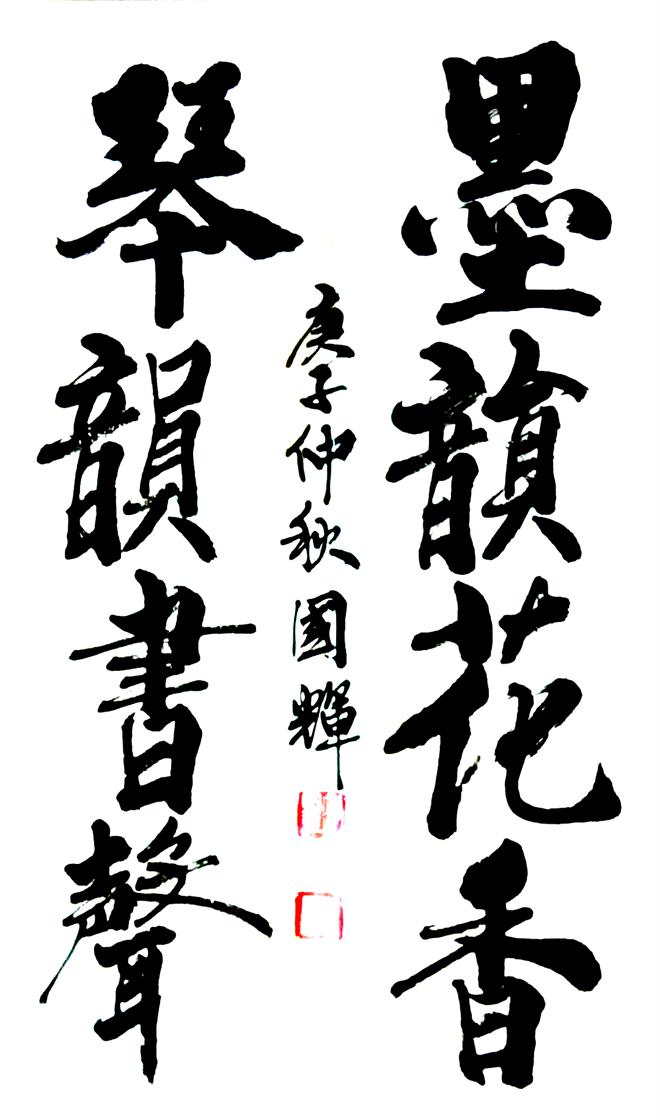 墨韻花香
琴韻書聲
庚子仲秋國輝